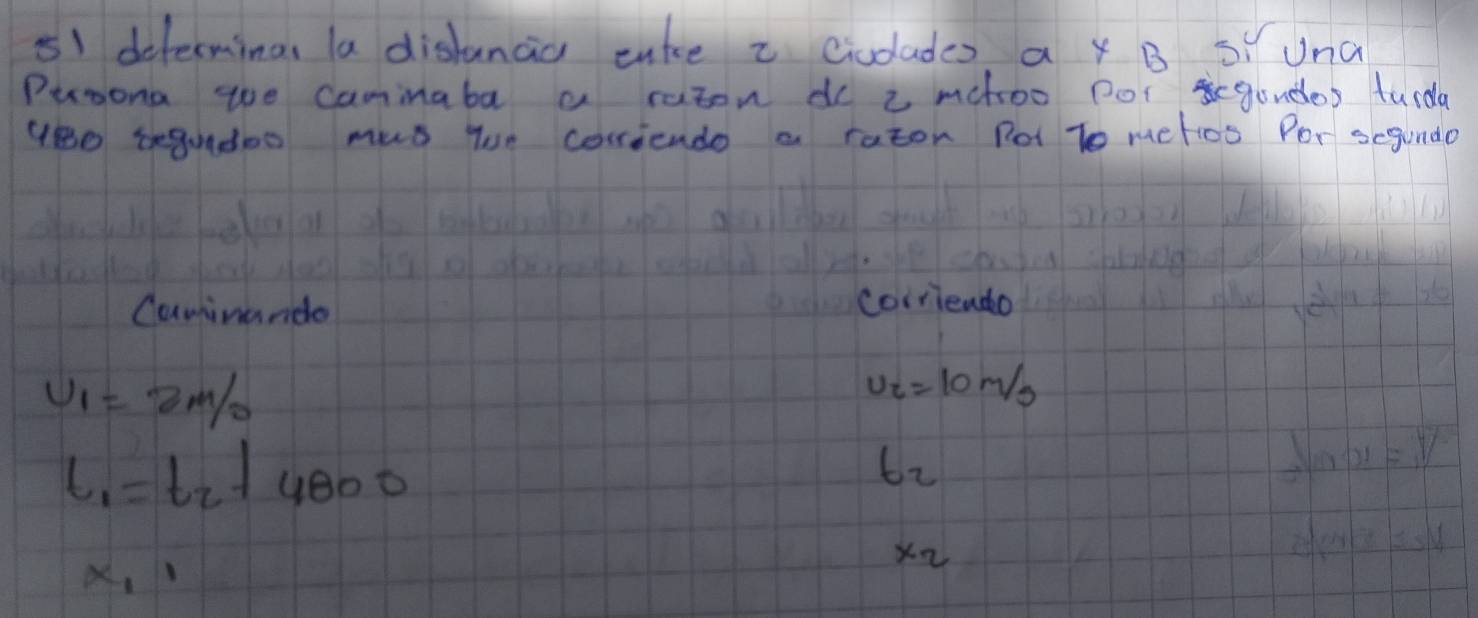 5) determinar la distancia entre 2 Ciudades a y B si una
Persona que caminaba a razon de 2 metros Por segundos tarda
480 segundos mas que corriendo a razon Por 10 metros Por segundo
Caminando
corriendo
V1 = 2m/s
V2 = 10 m/s
t1 = t2 + 480 s
t2
x1
x2